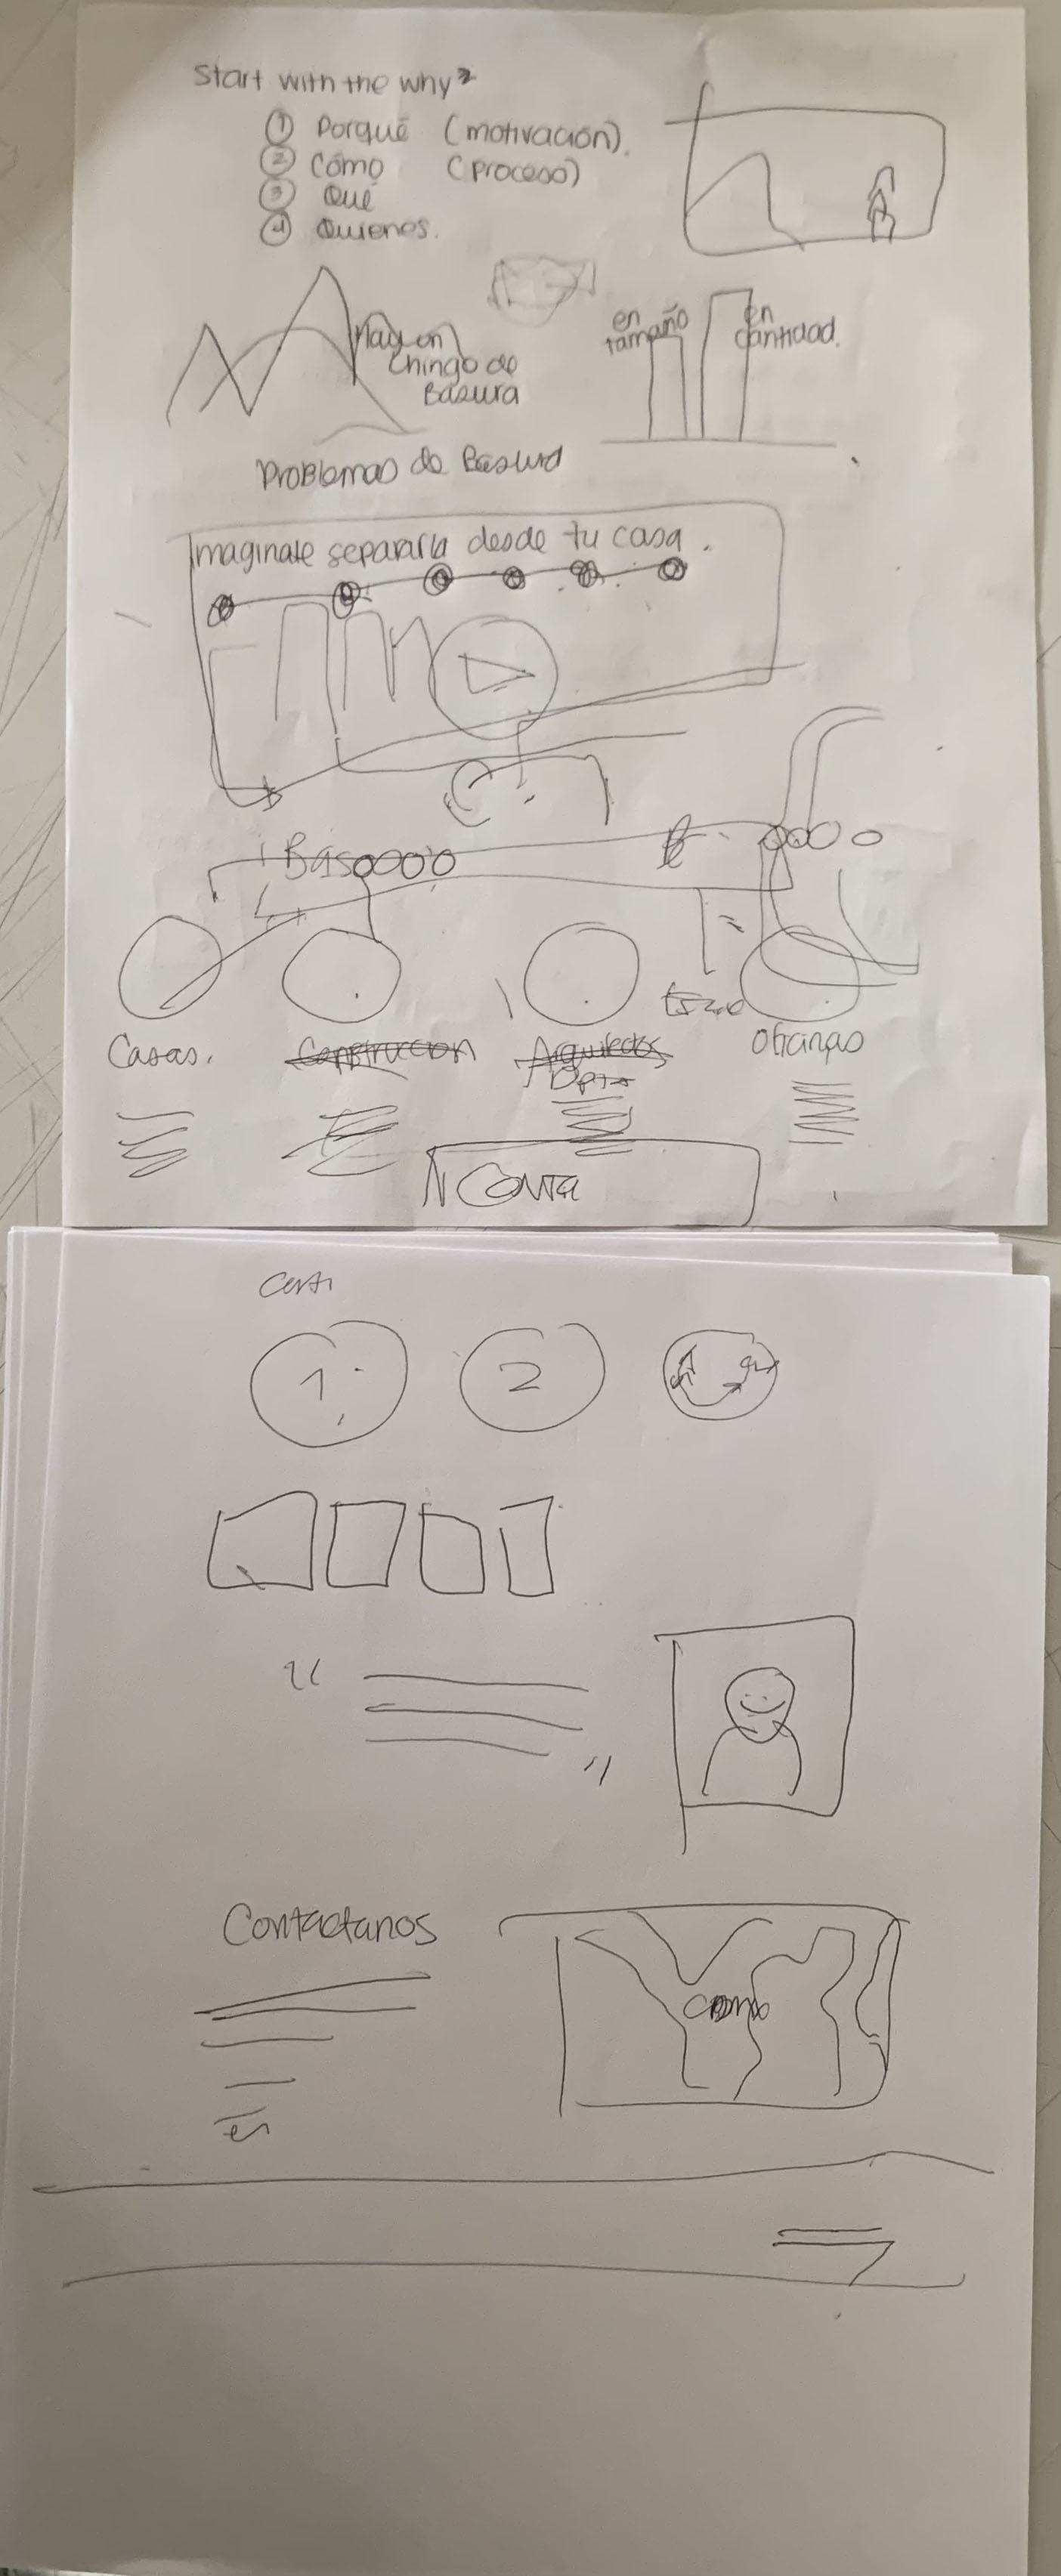 Start with the why?
① Porqué (motivación).
② Cómo (Proceso)
③ Qué
④ Quienes.
Hay un
chingo de
Basura
en
tamaño
en
cantidad.
Problemas de Basura
Imaginate separarla desde tu casa.
Casas.
Construccion
Arquitectos
Dpto
oficinas
1
2
"
"
Contactanos